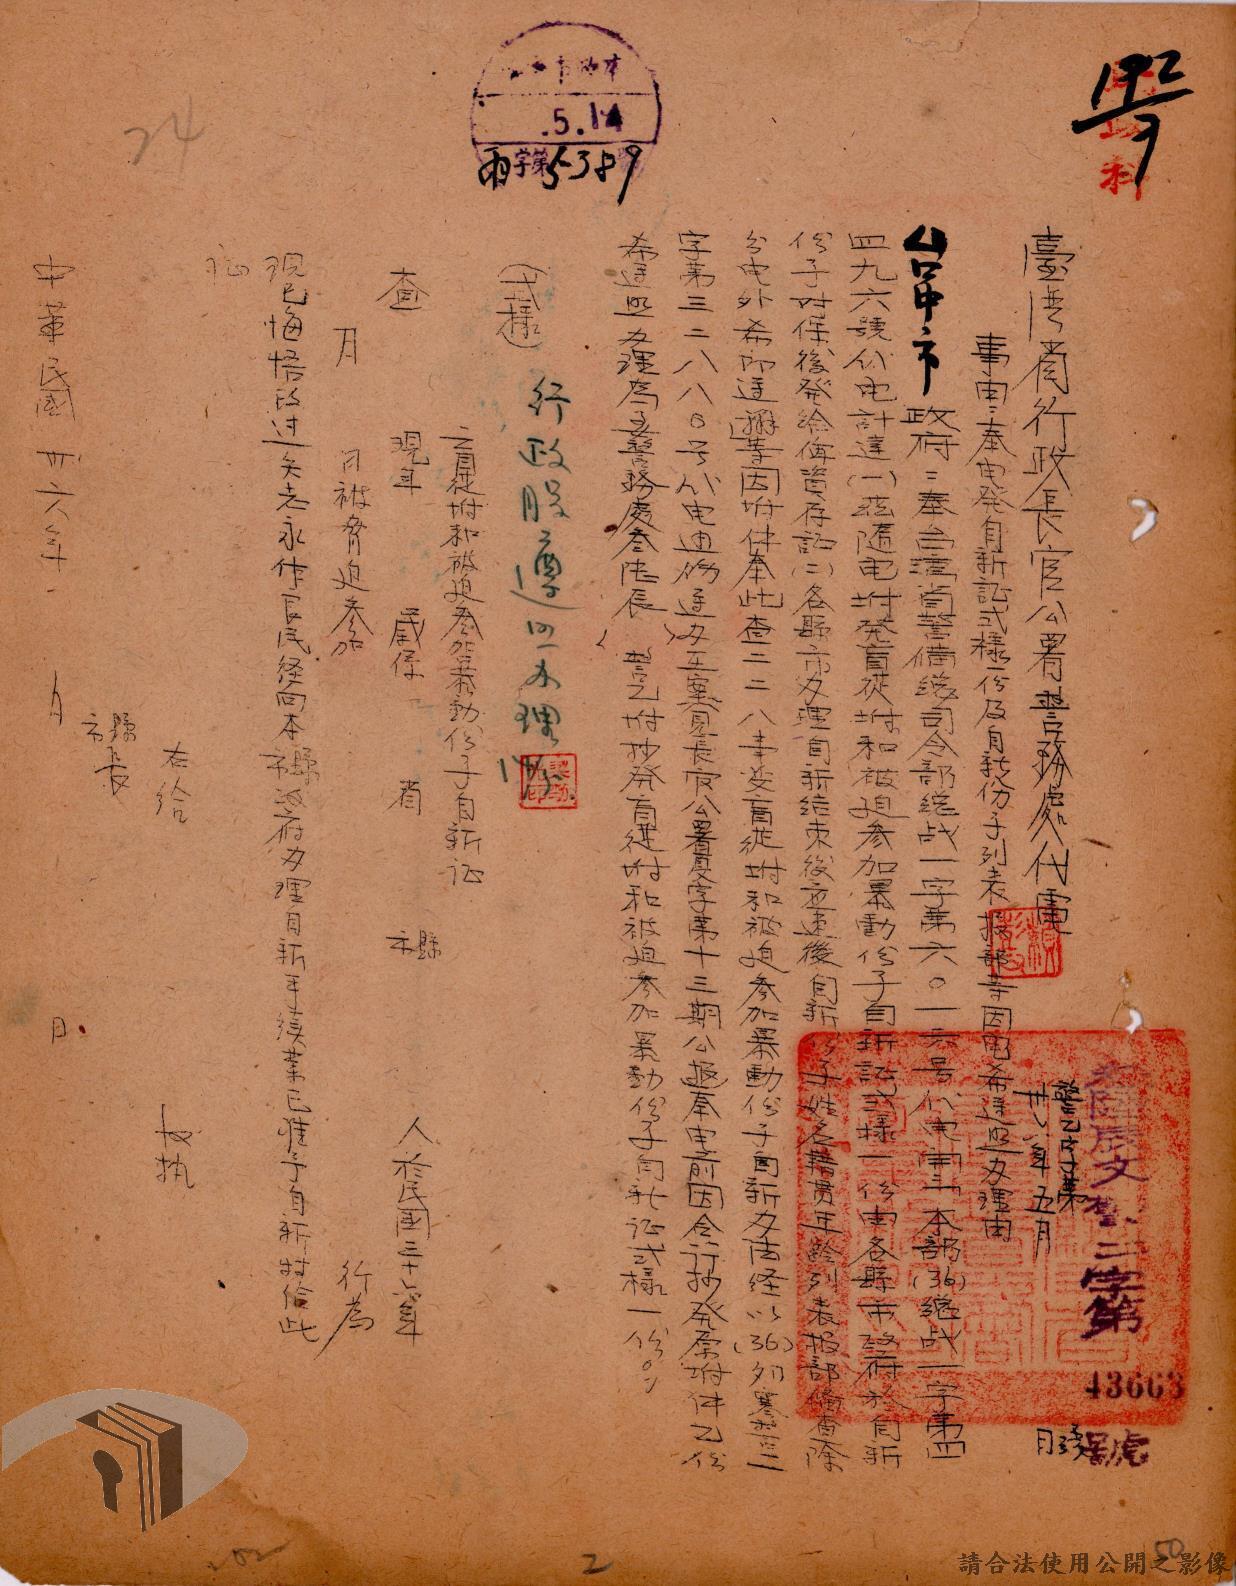 192/9
臺灣省行政長官公署警務處代電
警乙字第
卅六年五月 日發
號
43663
事由:奉電発自新証式樣一份及自新份子列表报部等因电希遵照办理由
台中市政府:奉台灣省警備總司令部總战一字第六〇一六号代电開:「本部(36)總战一字第四
四九六號代电計達(一)兹隨电坿発盲從坿和被迫参加暴動份子自新証式樣一份由各縣市政府於自新
份子对保後発給俾資存証(二)各縣市办理自新結束後迅速後自新份子姓名籍貫年龄列表报部備查除
分电外希即遵辦等因坿件奉此查二二八事变盲從坿和被迫参加暴動份子自新办法経以(36)列寒警二
字第三二八八〇号代电通饬遵办在案見長官公署夏字第十三期公报奉电前因合行抄発原坿件乙份
希遵照办理為要警務處叁陸辰( )警乙坿抄発盲從坿和被迫参加暴動份子自新证式樣一份
(式樣)
行政股遵照办理
盲從坿和被迫叁加暴動份子自新证
查 現年 歲係 省 縣市 人於民國三十六年
月 日被脅迫參加 行為
現已悔悟改过矢志永作良民経向本縣市政府办理自新手续業已准予自新特给此
証
右给 收执
縣市長
中華民國卅六年 月 日
5.14
字第5389
74
2
50
請合法使用公開之影像